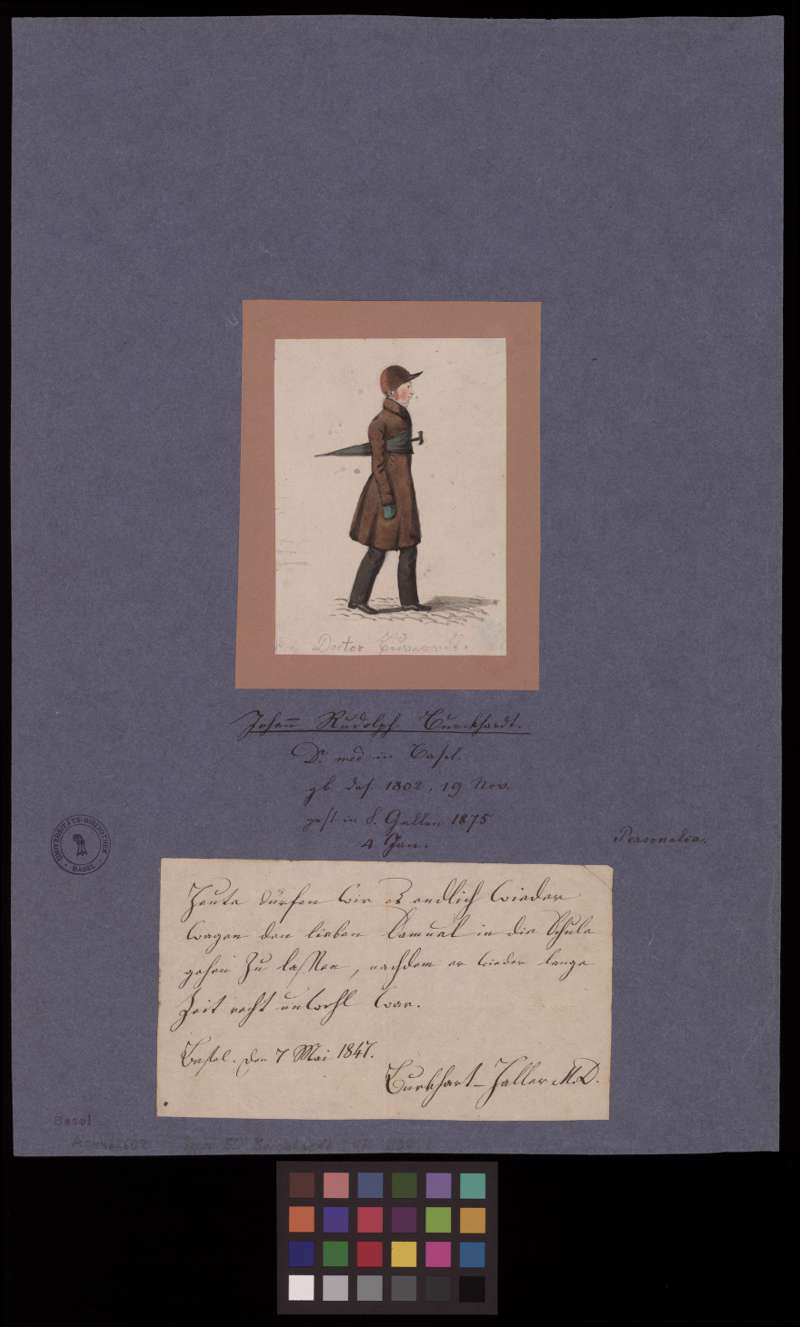 Doctor Burckardt.
Johann Rudolph Burckhardt.
Dr. med in Basel.
gb. das. 1802. 19 Nov.
gest in S. Gallen 1875
4 Jan.
Personalia.
UNIVERSITÄTS-BIBLIOTHEK
BASEL
Heute dürfen wir es endlich wieder
wagen den lieben Samuel in die Schule
gehen zu lassen, nachdem er wieder lange
Zeit recht unwohl war.
Basel. den 7 Mai 1847.
Burkhart-Haller M.D.
Basel